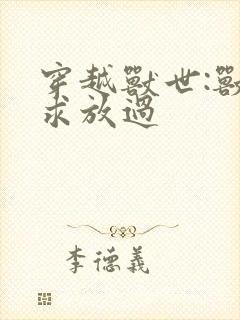 穿越獸世:獸
求放過
李德義